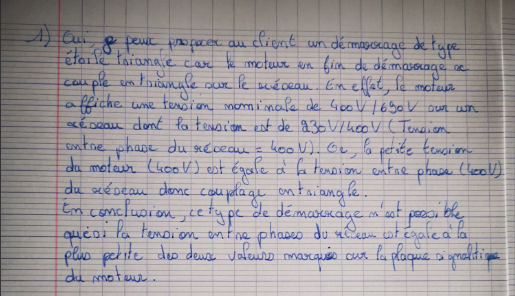 1) Oui je peux proposer au client un démarrage de type
étoile triangle car le moteur en fin de démarrage se
couple en triangle sur le réseau. En effet, le moteur
affiche une tension nominale de 400V/690V sur un
réseau dont la tension est de 230V/400V (Tension
entre phase du réseau = 400V). Or, la petite tension
du moteur (400V) est égale à la tension entre phase (400V)
du réseau donc couplage en triangle.
En conclusion, ce type de démarrage n'est possible
que si la tension entre phases du réseau est égale à la
plus petite des deux valeurs marquées sur la plaque signalétique
du moteur.